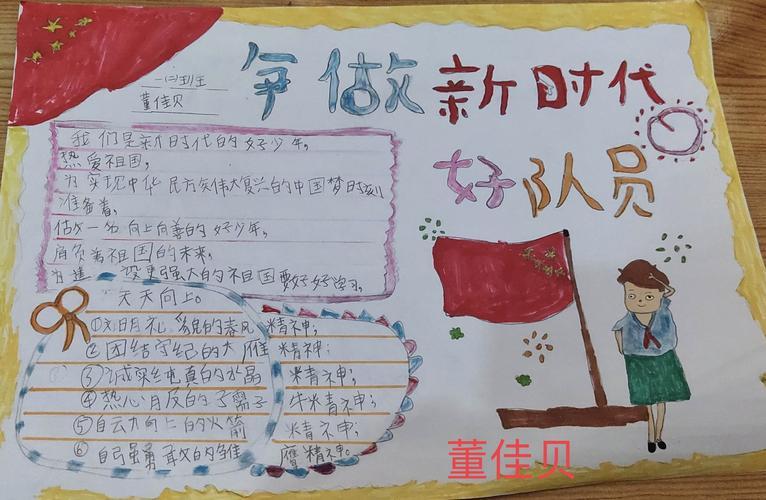 争做新时代
好队员
一(3)班
董佳贝
我们是新时代的好少年,
热爱祖国,
为实现中华民族伟大复兴的中国梦时刻
准备着,
做一名向上向善的好少年,
肩负着祖国的未来,
为建设更强大的祖国要好好学习,
天天向上。
①文明礼貌的春风精神;
②团结守纪的大雁精神;
③诚实纯真的水晶精神;
④热心的精神;
⑤自动向上的火箭精神;
⑥自强勇敢的雄鹰精神。
董佳贝